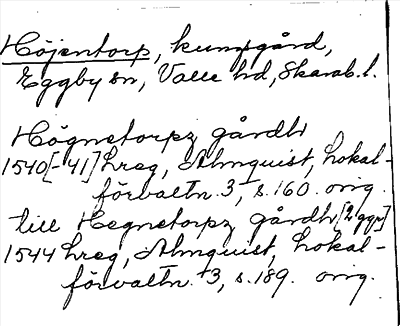 Höjentorp, kungsgård,
Eggby sn, Valle hd, Skarab. l.
Högnetorpz gårdh
1540[-41] hreg, Almquist, Lokal-
förvaltn. 3, s. 160. orig.
till Hegnetorpz gårdh [2 ggr]
1544 hreg, Almquist, Lokal-
förvaltn. 3, s. 189. orig.